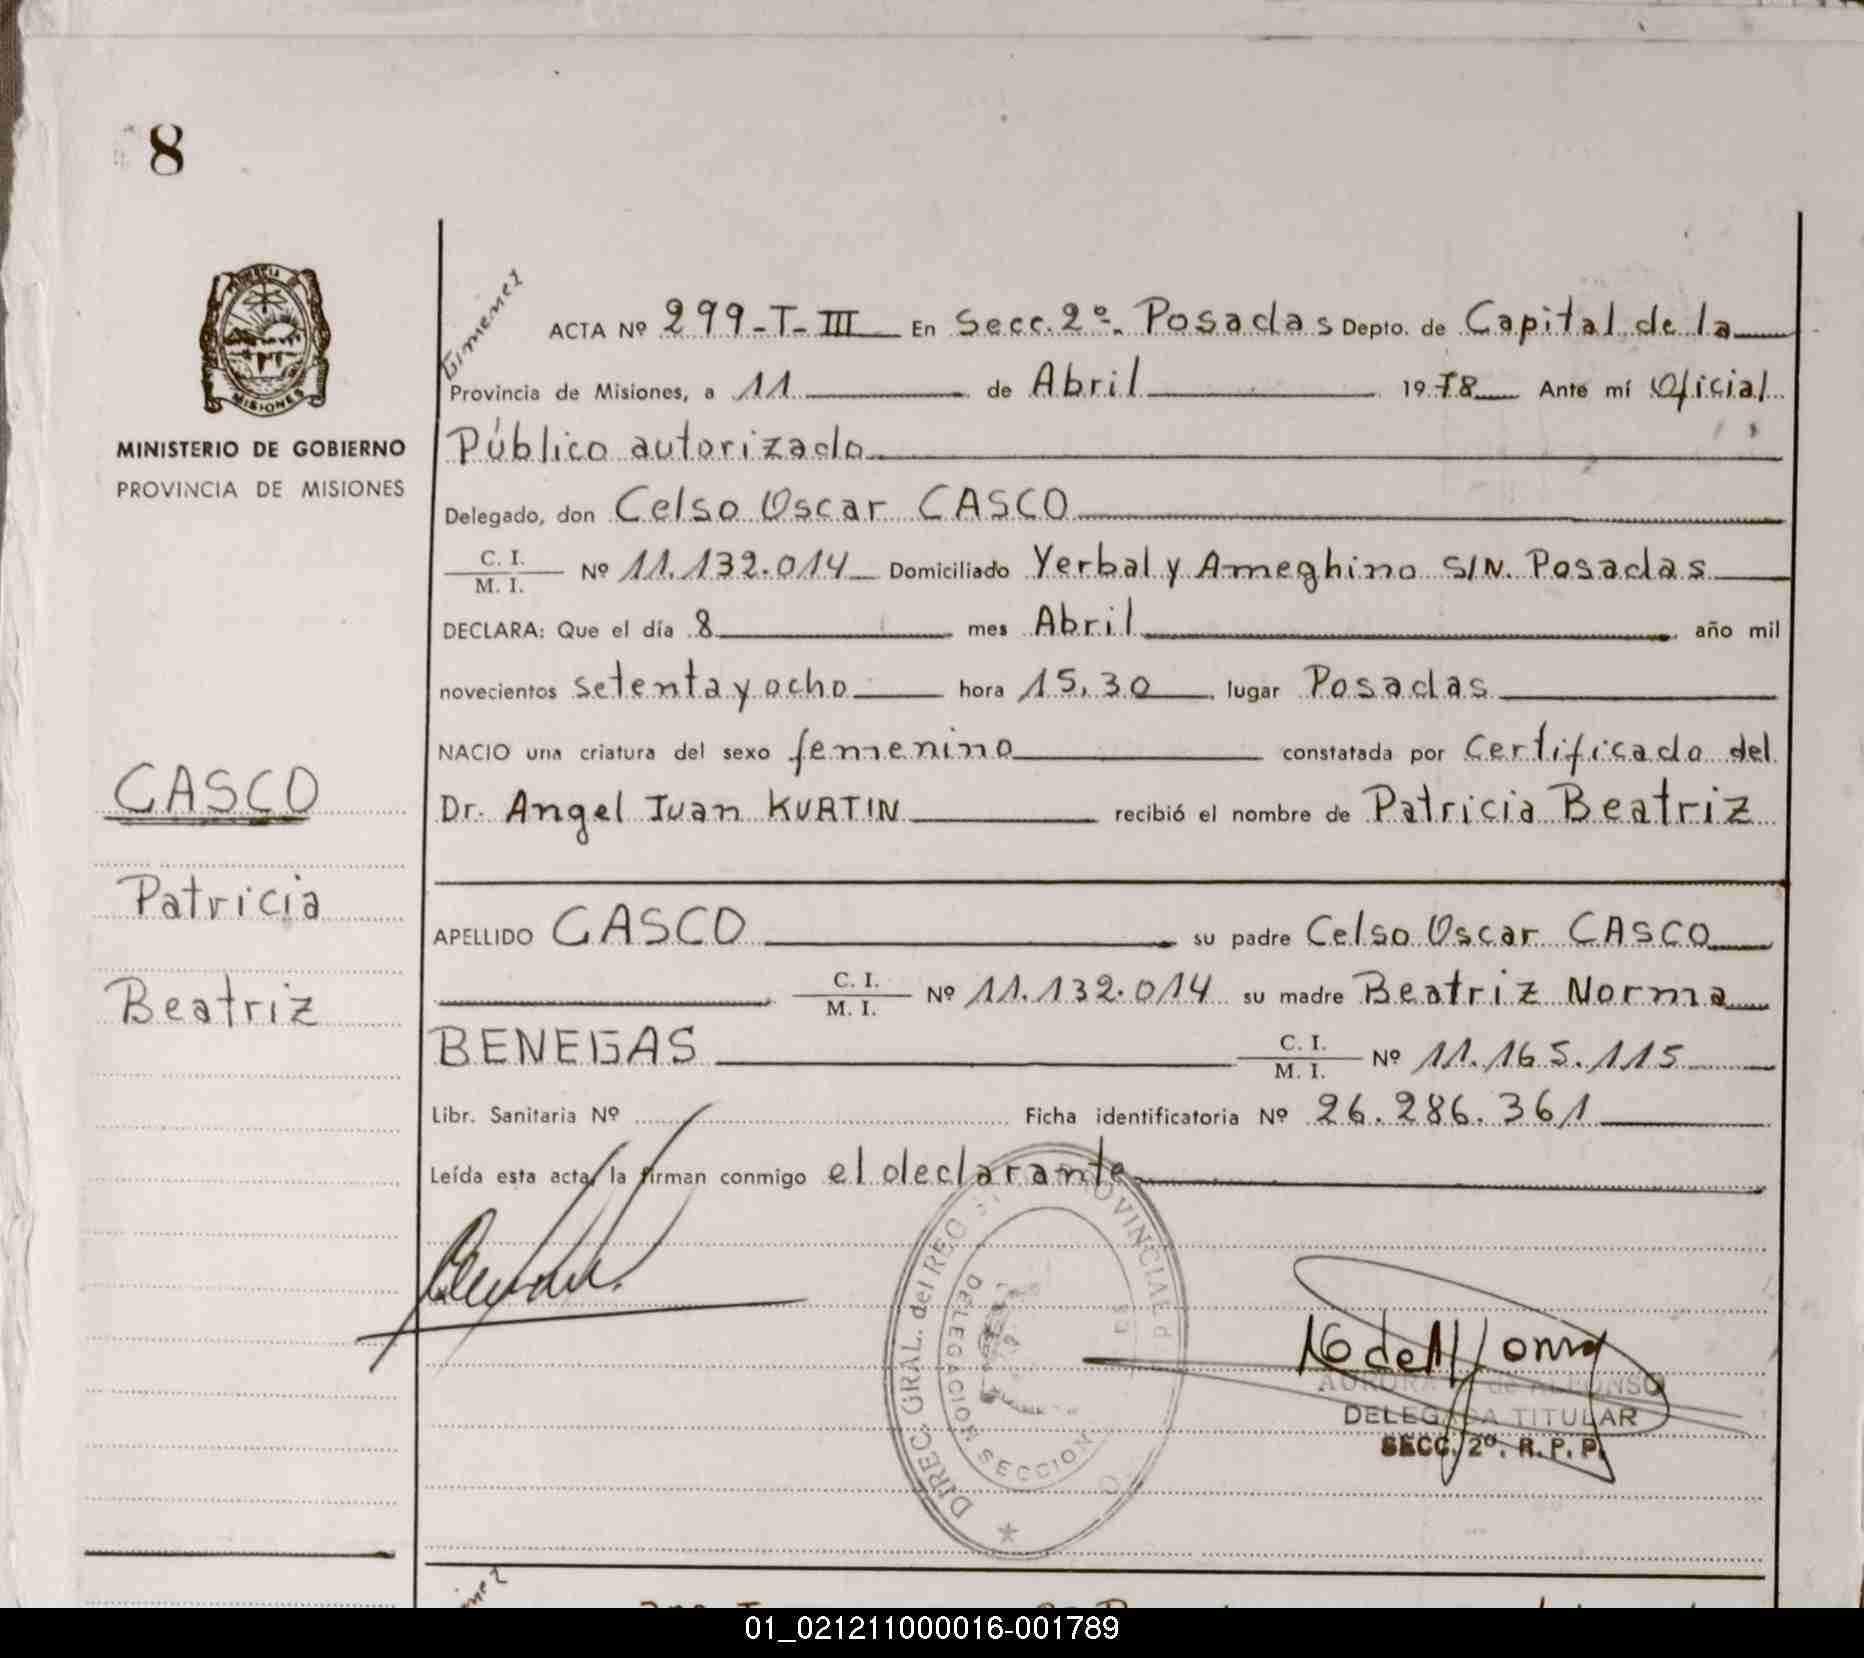 8
Gimenez
ACTA Nº 299-T-III En Secc. 2º. Posadas Depto. de Capital de la
Provincia de Misiones, a 11 de Abril 1978 Ante mí Oficial
Público autorizado
Delegado, don Celso Oscar CASCO
C. I.
M. I. Nº 11.132.014 Domiciliado Yerbal y Ameghino S/N. Posadas
DECLARA: Que el día 8 mes Abril año mil
novecientos setenta y ocho hora 15,30 lugar Posadas
NACIO una criatura del sexo femenino constatada por Certificado del
Dr. Angel Juan KURTIN recibió el nombre de Patricia Beatriz
APELLIDO CASCO su padre Celso Oscar CASCO
C. I.
M. I. Nº 11.132.014 su madre Beatriz Norma
BENEGAS C. I.
M. I. Nº 11.165.115
Libr. Sanitaria Nº Ficha identificatoria Nº 26.286.361
Leída esta acta, la firman conmigo el declarante
MISIONES
MINISTERIO DE GOBIERNO
PROVINCIA DE MISIONES
CASCO
Patricia
Beatriz
DIREC. GRAL. del REG PROVINCIAL d
DELEGACION SECCION
AURORA de ALFONSO
DELEGADA TITULAR
SECC. 2º. R. P. P.
01_021211000016-001789